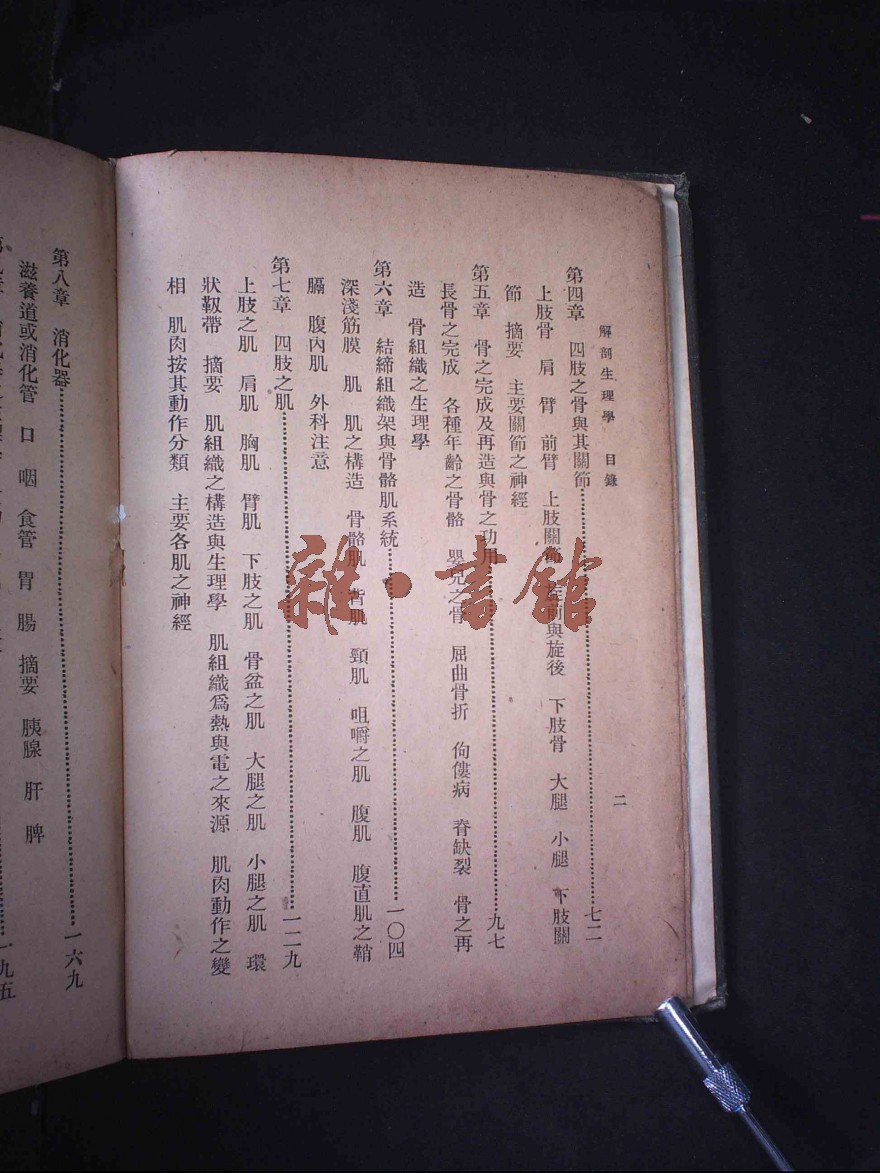 解剖生理學 目錄 二
第四章 四肢之骨與其關節……七二
上肢骨 肩 臂 前臂 上肢關節 旋前與旋後 下肢骨 大腿 小腿 下肢關
節 摘要 主要關節之神經
第五章 骨之完成及再造與骨之功用……九七
長骨之完成 各種年齡之骨骼 嬰兒之骨 屈曲骨折 佝僂病 脊缺裂 骨之再
造 骨組織之生理學
第六章 結締組織架與骨骼肌系統……一〇四
深淺筋膜 肌 肌之構造 骨骼肌 背肌 頸肌 咀嚼之肌 腹肌 腹直肌之鞘
膈 腹內肌 外科注意
第七章 四肢之肌……一二九
上肢之肌 肩肌 胸肌 臂肌 下肢之肌 骨盆之肌 大腿之肌 小腿之肌 環
狀靱帶 摘要 肌組織之構造與生理學 肌組織爲熱與電之來源 肌肉動作之變
相 肌肉按其動作分類 主要各肌之神經
第八章 消化器……一六九
滋養道或消化管 口 咽 食管 胃 腸 摘要 胰腺 肝 脾
一九五
雜·書館